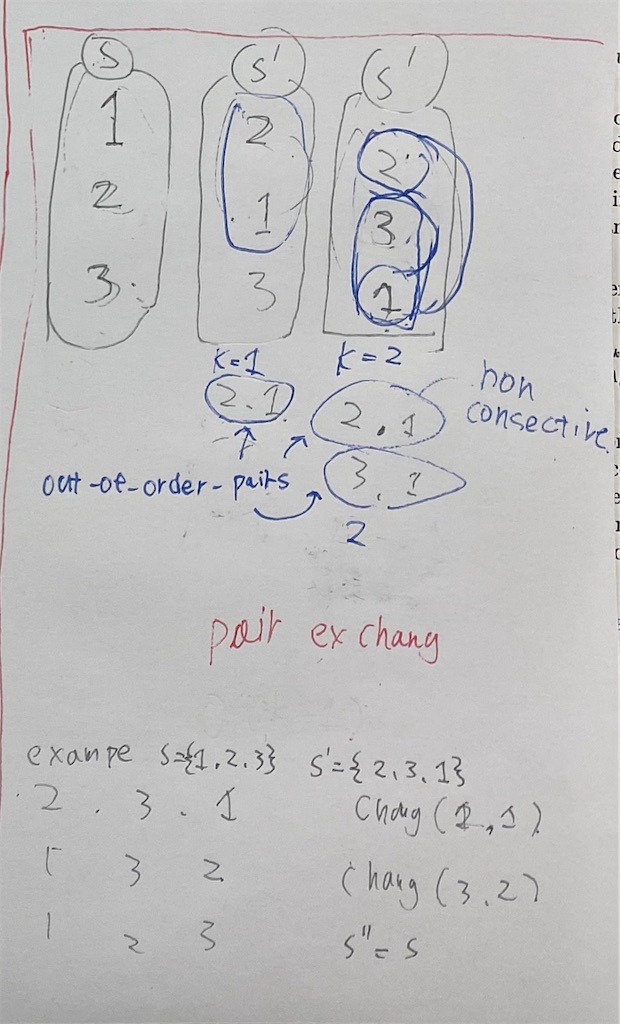 S S' S'
1 2 2
2 1 3
3 3 1
K=1 K=2
2.1 2.1 non
consective
3.1
out-of-order-pairs
2
pair exchang
exampe S={1.2.3} S'={2.3.1}
2 . 3 . 1 Chang (2,1)
1 3 2 Chang (3.2)
1 2 3 S''=S